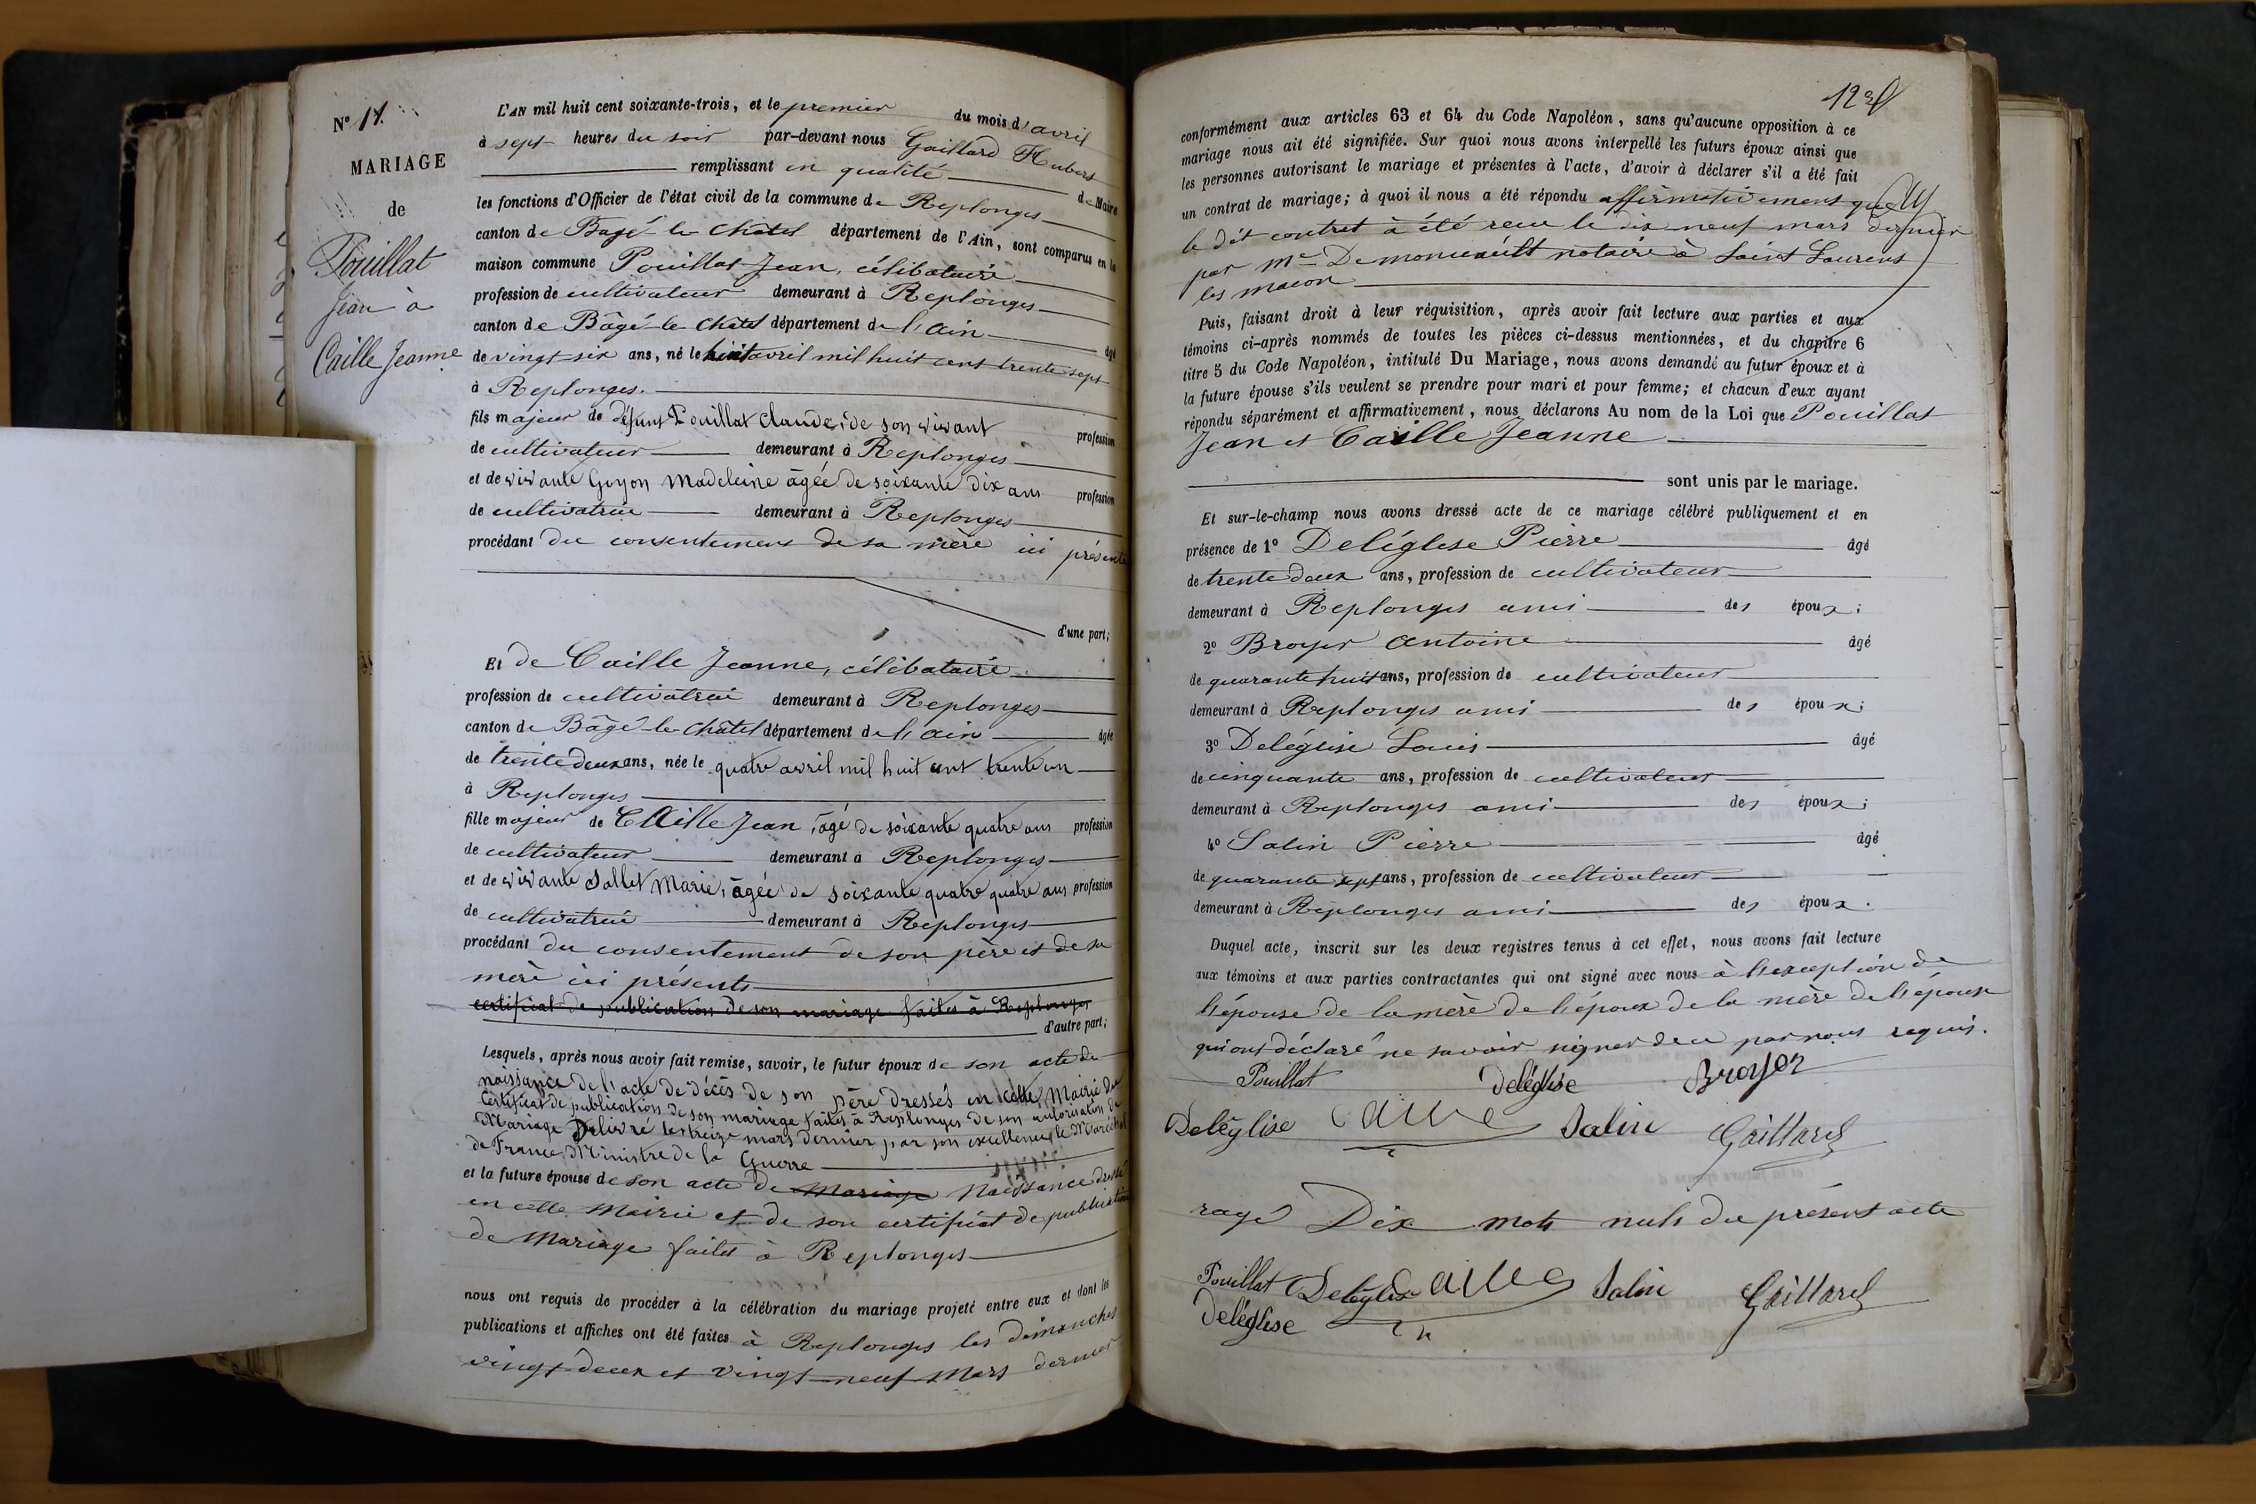 N° 11.
MARIAGE
de
Pouillat
Jean à
Caille Jeanne
L'AN mil huit cent soixante-trois, et le premier du mois d'avril
à sept heures du soir par-devant nous Gaillard Hubert
remplissant en qualité de Maire
les fonctions d'Officier de l'état civil de la commune de Replonges
canton de Bagé-le-Châtel département de l'Ain, sont comparus en la
maison commune Pouillat Jean, célibataire
profession de cultivateur demeurant à Replonges
canton de Bâgé-le-Châtel département de l'ain âgé
de vingt six ans, né le huit avril mil huit cent trente sept
à Replonges.
fils majeur de défunt Pouillat Claude, de son vivant profession
de cultivateur demeurant à Replonges
et de vivante Guyon Madeleine âgée de soixante dix ans profession
de cultivatrice demeurant à Replonges
procédant du consentement de sa mère ici présente
d'une part;
Et de Caille Jeanne, célibataire
profession de cultivatrice demeurant à Replonges
canton de Bâgé-le-Châtel département de l'ain âgée
de trente deux ans, née le quatre avril mil huit cent trente un
à Replonges
fille majeur de Caille Jean, âgé de soixante quatre ans profession
de cultivateur demeurant à Replonges
et de vivante Sallet Marie, âgée de soixante quatre quatre ans profession
de cultivatrice demeurant à Replonges
procédant du consentement de son père et de sa
mère ici présents
certificat de publication de son mariage faites à Replonges
d'autre part;
Lesquels, après nous avoir fait remise, savoir, le futur époux de son acte de
naissance de l'acte de décès de son père dressés en cette Mairie du
Certificat de publication de son mariage faites à Replonges de son autorisation de
Mariage Délivré le treize mars dernier par son excellence le Maréchal
de France Ministre de la Guerre
et la future épouse de son acte de Mariage Naissance dressé
en cette Mairie et de son certificat de publication
de Mariage faites à Replonges
nous ont requis de procéder à la célébration du mariage projeté entre eux et dont les
publications et affiches ont été faites à Replonges les dimanches
vingt-deux et vingt-neuf Mars dernier
conformément aux articles 63 et 64 du Code Napoléon, sans qu'aucune opposition à ce
mariage nous ait été signifiée. Sur quoi nous avons interpellé les futurs époux ainsi que
les personnes autorisant le mariage et présentes à l'acte, d'avoir à déclarer s'il a été fait
un contrat de mariage; à quoi il nous a été répondu affirmativement que
le dit contrat à été recu le dix neuf mars dernier
par Me Demoncault notaire à Saint Laurent
les macon
Puis, faisant droit à leur réquisition, après avoir fait lecture aux parties et aux
témoins ci-après nommés de toutes les pièces ci-dessus mentionnées, et du chapitre 6
titre 5 du Code Napoléon, intitulé Du Mariage, nous avons demandé au futur époux et à
la future épouse s'ils veulent se prendre pour mari et pour femme; et chacun d'eux ayant
répondu séparément et affirmativement, nous déclarons Au nom de la Loi que Pouillat
Jean et Caille Jeanne
sont unis par le mariage.
Et sur-le-champ nous avons dressé acte de ce mariage célébré publiquement et en
présence de 1° Deléglise Pierre âgé
de trente deux ans, profession de cultivateur
demeurant à Replonges ami des époux;
2° Broyer Antoine âgé
de quarante huit ans, profession de cultivateur
demeurant à Replonges ami des époux;
3° Deléglise Louis âgé
de cinquante ans, profession de cultivateur
demeurant à Replonges ami des époux;
4° Salin Pierre âgé
de quarante sept ans, profession de cultivateur
demeurant à Replonges ami des époux.
Duquel acte, inscrit sur les deux registres tenus à cet effet, nous avons fait lecture
aux témoins et aux parties contractantes qui ont signé avec nous à l'exception de
l'épouse de la mère de l'époux de la mère de l'épouse
qui ont déclaré ne savoir signer de ce par nous requis.
Pouillat deléglise Broyer
Deléglise Caille Salin Gaillard
rayé Dix mots nuls du présent acte
Pouillat Deléglise Caille Salin Gaillard
deléglise